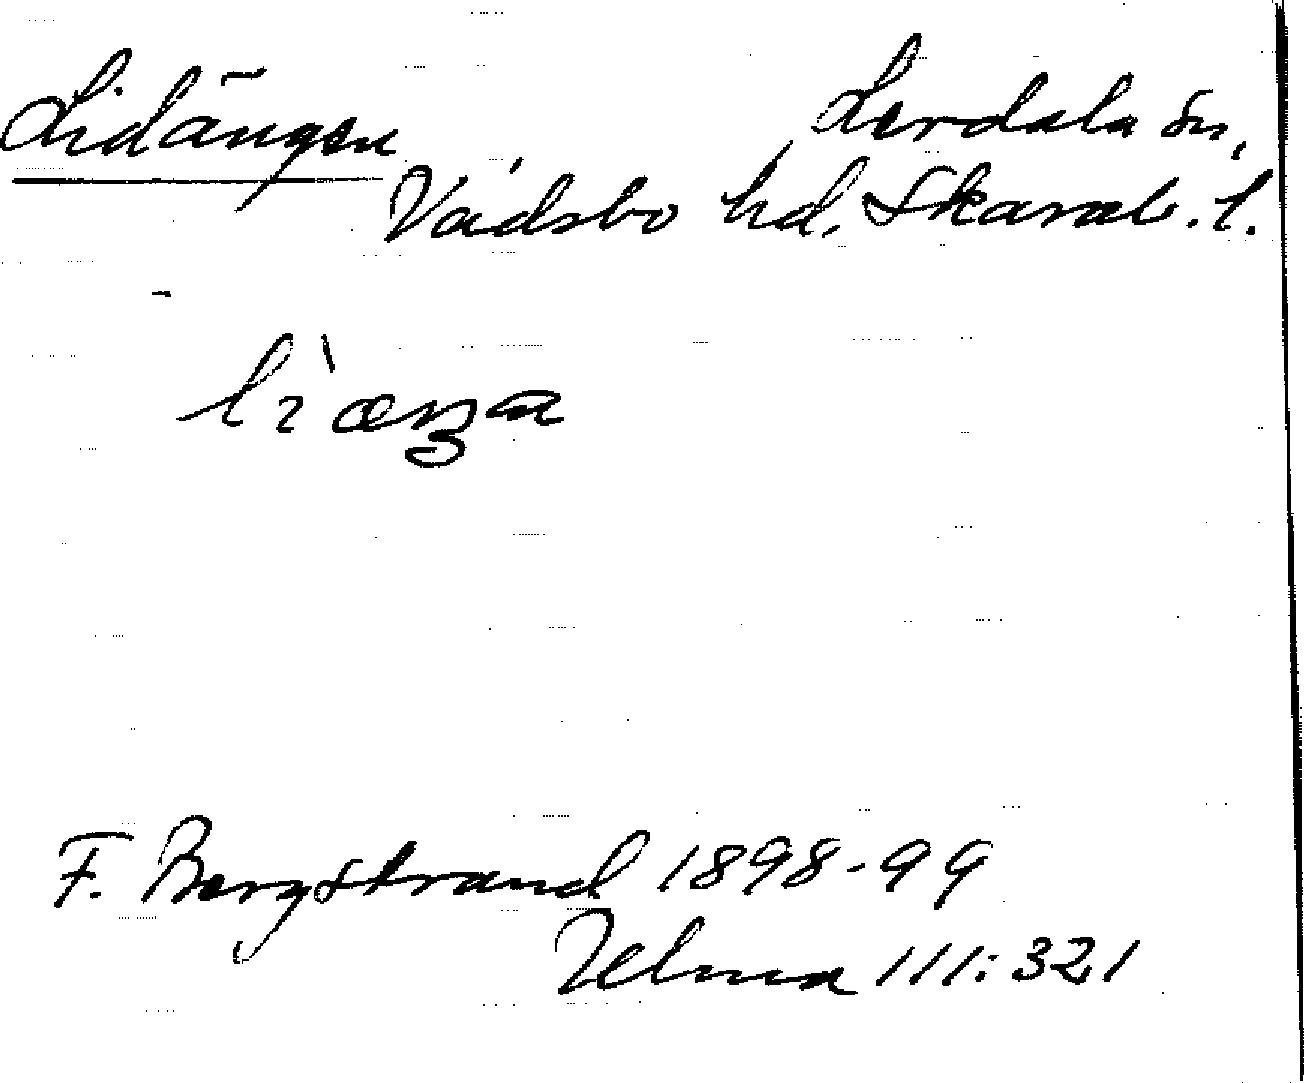 Lidängen Lerdala sn,
Vadsbo hd. Skarab. l.
F. Bergstrand 1898-99
Uelma 111:321